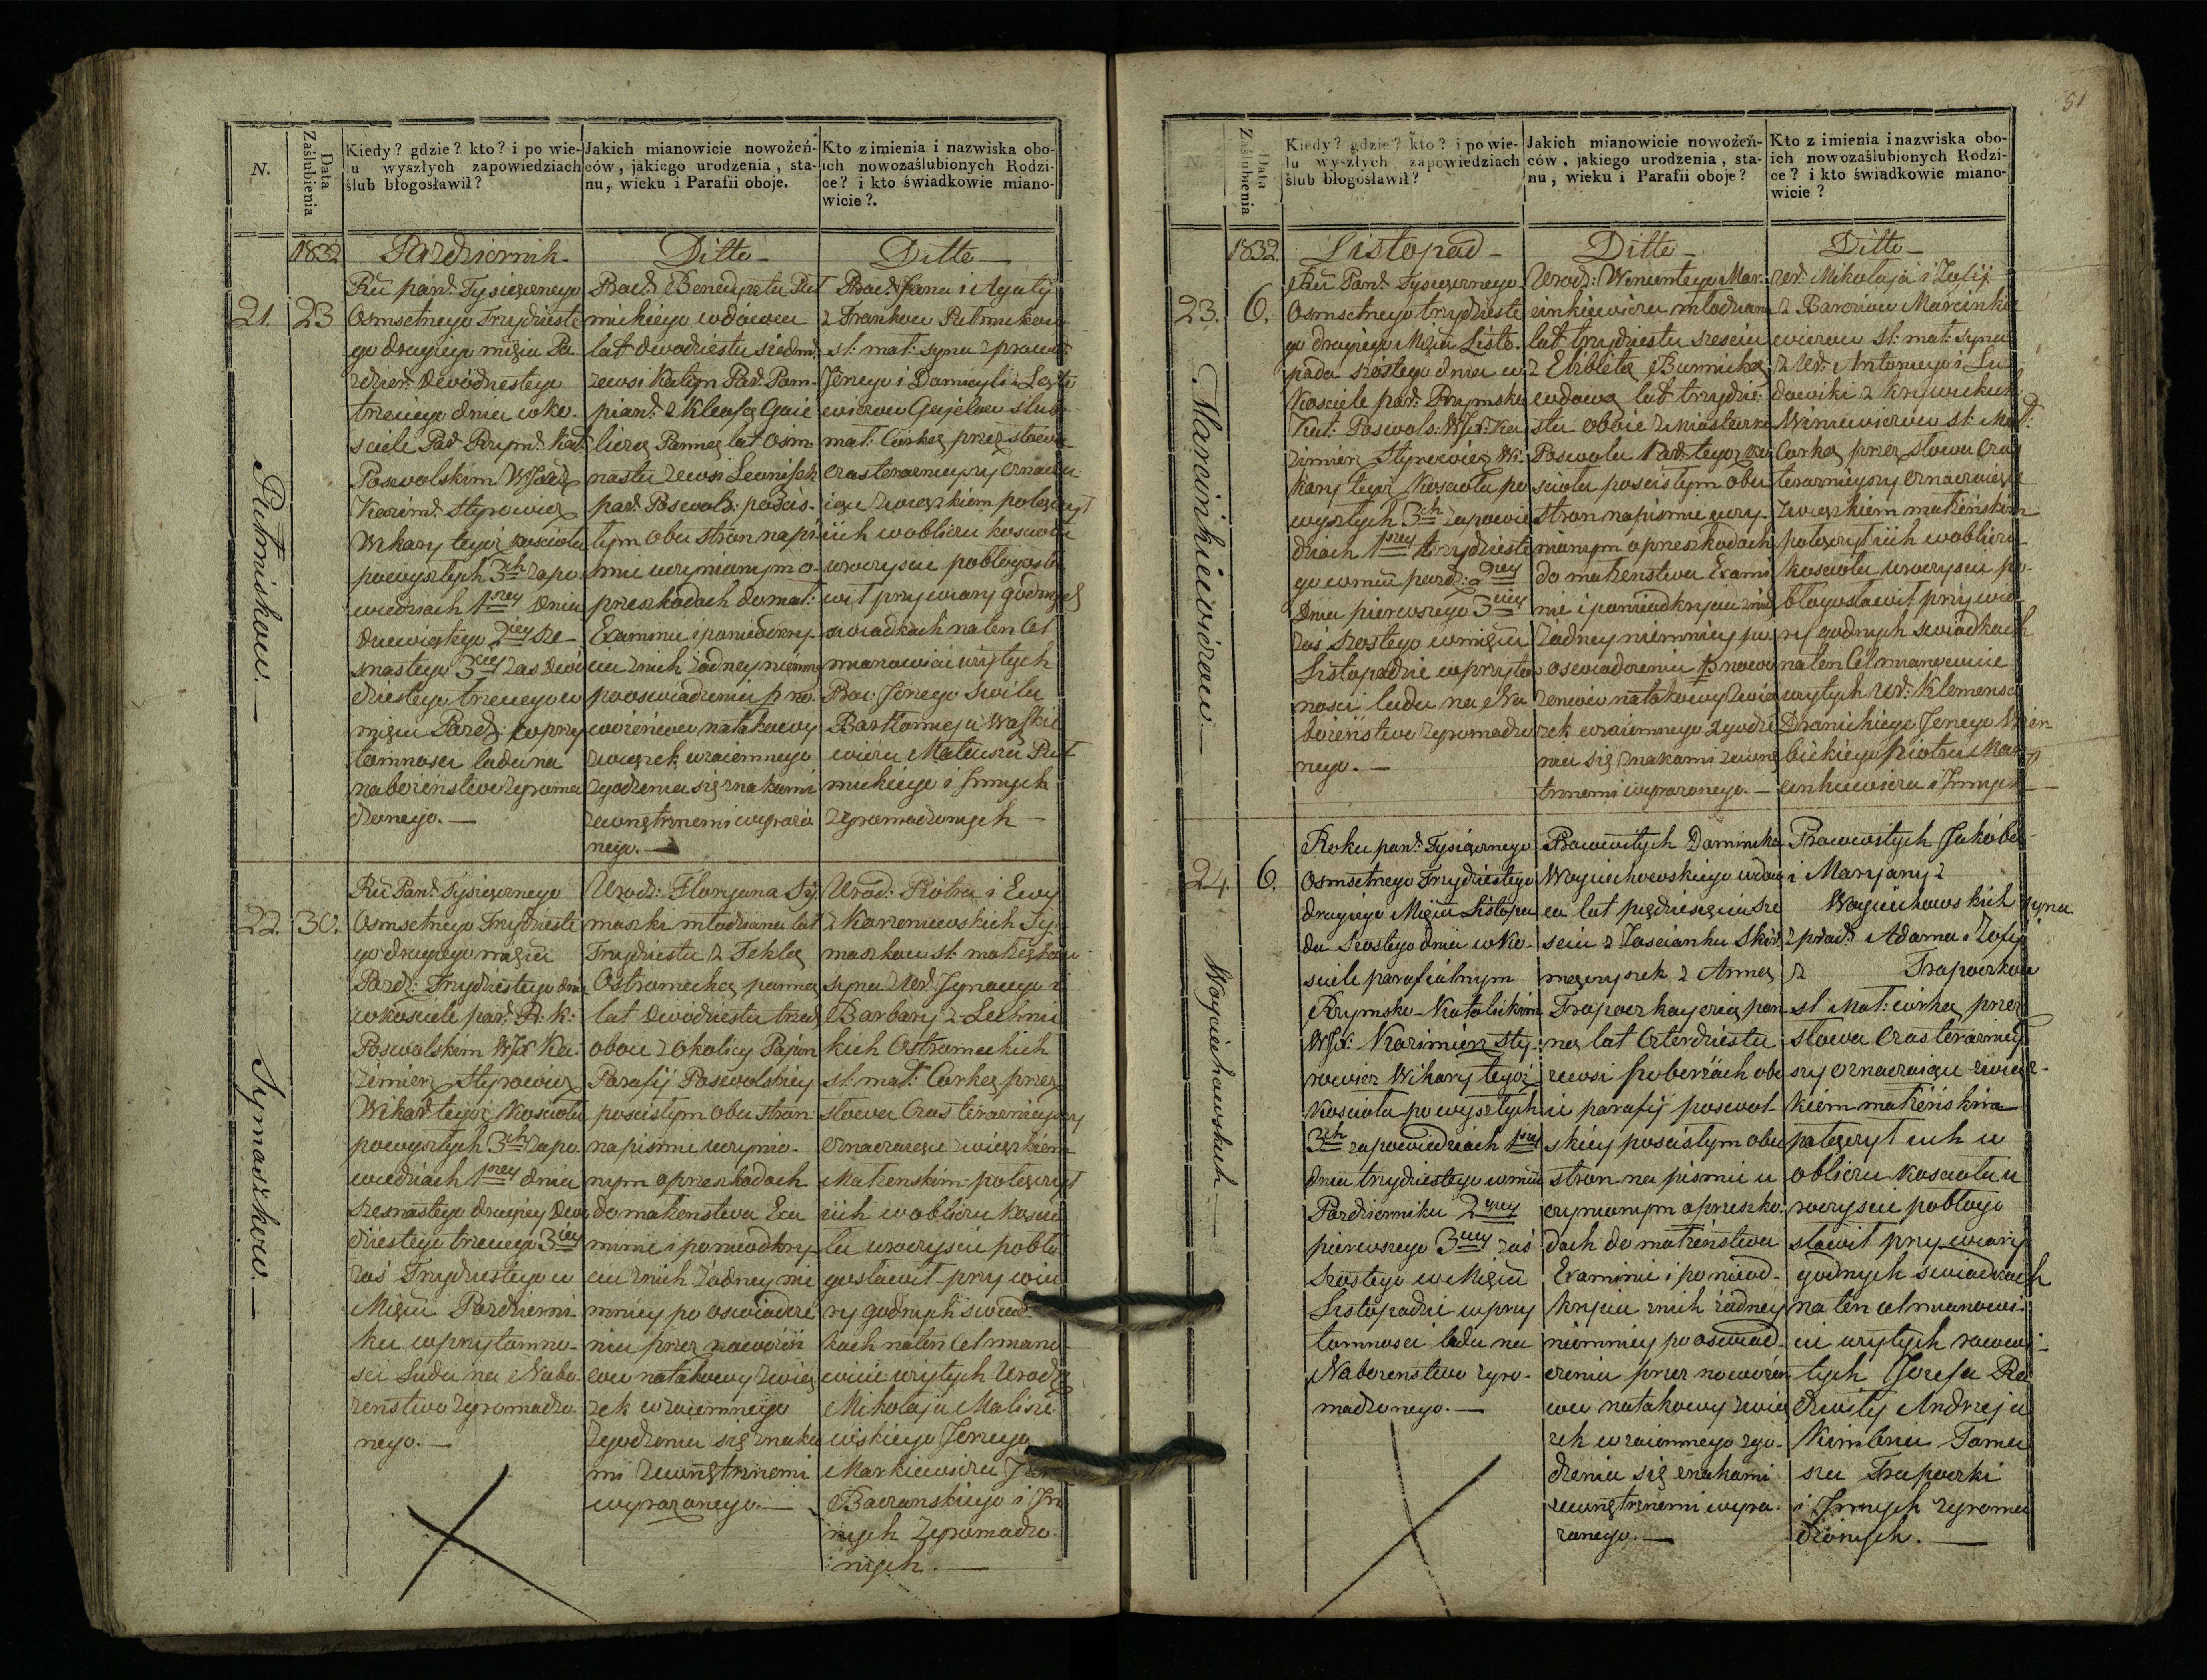 N.
Data Zaślubienia
Kiedy? gdzie? kto? i po wie-
lu wyszłych zapowiedziach
ślub błogosławił?
Jakich mianowicie nowożeń-
ców, jakiego urodzenia, sta-
nu, wieku i Parafii oboje.
Kto z imienia i nazwiska obo-
ich nowozaślubionych Rodzi-
ce? i kto świadkowie miano-
wicie?.
1832
Pazdziernik
Ditto
Ditto
21.
23
Putmiskow.
Ru pan: Tysiącznego
Osmsetnego Trzydzieste
go drugiego miąca Pa-
zdzier: dwódziestego
trzeciego dnia w ko-
sciele Par: Rzym: Kat:
Poswolskim WJX:
Kazim: Styrowicz
Wikary tegoż koscioła
po wyszłych 3ch zapo-
wiedziach 1szey dnia
dziewiątego 2iey sze-
snastego 3ciey zas dwó
dziestego trzeciego w
miącu Pazdz: w przy
tomnosci ludu na
nabożeństwo zgroma
dzonego.
Prac: Benedykta Put
mickiego wdowca
lat dwodziestu siedm:
zewsi Par: Pom-
pian: z Kleofą Gaie
liczą Panną lat Osm-
nastu zewsi
par: Poswols: po scis-
łym obu stron na pi-
smie uczynionym o
przeszkodach do mał:
Examinie i poniedokry-
ciu znich żadney niemniey
po oswiadczeniu p no-
wożeńcow natakowy
związek wzaiemnego
zgodzenia się znakami
zewnętrznemi wyrażo
nego.
Prac: Jana i Agaty
z Frankow Putmikow
sl: mał: syna z pracow:
Jerzego i Danieyli z
ewiczow Gajelow slub:
mał: Corkę przez słowa
czasteraznieyszy oznacza-
iące związkiem połączył
iich w obliczu kosciołu
uroczyscie pobłogosła
wił przy wiary godnych
swiadkach na ten Cel
mianowicie użytych
Prac: Jerzego Swilu
Bartłomieja Waszkie
wicza Mateusza Put
mickiego i Jnnych
zgromadzonych
22.
30.
Symaszkow.
Ru Pan: Tysiącznego
Osmsetnego Trzydzieste
go drugiego miąca
Pazdz: Trzydziestego dnia
w kosciele par: R: K:
Poswolskim WJX Ka-
zimierz Styrowicz
Wikar: tegoż Kosciołu
po wyszłych 3ch zapo
wiedziach 1szey dnia
szesnastego drugiey dwu
dziestego trzeciego 3iey
zaś Trzydziestego w
Miącu Pazdzierni-
ku w przytomno-
sci Ludu na Nabo
żenstwo zgromadzo
nego.
Urodz: Floryana Sy
maszki młodziana lat
Trzydziestu z Teklą
Ostromecką panną
lat dwódziestu trzech
oboie z Okolicy Pajun
Parafij Poswolskiey
po scisłym obu stron
na pismie uczynio-
nym o przeszkodach
do małżenstwa Exa
minie i ponieodkry
ciu znich żadney nie
mniey po oswiadcze
niu przez nowożeń
cow natakowy zwią
zek wzaiemnego
zgodzenia się znaka
mi zewnętrznemi
wyrażonego.
Urod: Piotra i Ewy
z Karzeniewskich Sy-
maszkow sl: małżęskow
syna z Ur: Jgnacego i
Barbary z Lechnic
kich Ostromeckich
sl: mał: Corkę przez
słowa czasteraznieyszy
oznaczaiące związkiem
Małżenskim połączył
iich w obliczu Koscio
ła uroczyscie pobło
gosławił przy wia
ry godnych swiad-
kach na ten Cel miano-
wicie użytych Urodz:
Mikołaja Malisze
wskiego Jerzego
Markiewicza
Baczanskiego i Jn
nych zgromadzo-
nych.
51
Data Zaślubienia
Kiedy? gdzie? kto? i po wie-
lu wyszłych zapowiedziach
ślub błogosławił?
Jakich mianowicie nowożeń-
ców, jakiego urodzenia, sta-
nu, wieku i Parafii oboje?
Kto z imienia i nazwiska obo-
ich nowozaślubionych Rodzi-
ce? i kto świadkowie miano-
wicie?
1832.
Listopad
Ditto
Ditto
23.
6.
Marcinkiewiczow.
Ru Pan: Tysiącznego
Osmsetnego trzydzieste
go drugiego Miąca Listo-
pada szóstego dnia w
Kosciele par: Rzymsko
Kat: Poswols: WJX: Ka
zimierz Styrowicz Wi-
kary tegoż Kosciołu po
wyszłych 3ch zapowie
dziach 1szey trzydzieste
go w miącu pazdz: 2iey
dnia pierwszego 3ciey
zaś szostego w miącu
Listopadzie w przytom
nosci ludu na Na-
bożeństwo zgromadzo
nego.
Urodz: Wincentego Mar-
cinkiewicza młodziana
lat trzydziestu szesciu
z Elżbietą Burnicką
wdową lat trzydzie-
stu oboie z miasteczka
Poswola Par: tegoż ko
scioła po scisłym obu
stron na pismie uczy-
nionym o przeszkodach
do małżenstwa Exami
nie i ponieodkryciu znich
żadney niemniey po
oswiadczeniu p nowo
żencow natakowy zwią
zek wzaiemnego zgodze
nia się znakami zewnę
trznemi wyrażonego.
Ur: Mikołaja i Julij
z Baroniow Marcinkie
wiczow sl: mał: syna
z Ur: Antoniego i Lu
dowiki z
Winiewiczow sl: Mał:
Corkę przez słowa cza
steraznieyszy oznaczaiące
związkiem małżeńskim
połączył iich w obliczu
kosciołu uroczyscie po-
błogosławił przy wia
ry godnych swiadkach
na ten Cel mianowicie
użytych Ur: Klemensa
Dranickiego Jerzego Wier-
bickiego Piotra Mar
cinkiewicza i Jnnych
24.
6.
Woyciechowskich
Roku pan: Tysiącznego
Osmsetnego Trzydziestego
drugiego Miąca Listopa
da szostego dnia w Ko-
sciele parafialnym
Rzymsko-Katolickim
WJX: Kazimierz Sty-
rowicz Wikary tegoż
Kosciołu po wyszłych
3ch zapowiedziach 1szey
dnia trzydziestego w miącu
Pazdzierniku 2giey
pierwszego 3ciey zaś
szostego w Miącu
Listopadzie w przy
tomnosci ludu na
Nabożenstwo zgro-
madzonego.
Pracowitych Dominika
Woyciechowskiego wdow
ca lat pięćdziesięciu sze
sciu z Zascianku
z Anną
Trapaczkayczią pan
ną lat Czterdziestu
zewsi poberżach obo
ie parafij poswol-
skiey po scisłym obu
stron na pismie u
czynionym o przeszko-
dach do małżeństwa
Examinie i ponieod-
kryciu znich żadney
niemniey po oswiad-
czeniu przez nowożeń
cow natakowy zwią
zek wzaiemnego zgo-
dzenia się znakami
zewnętrznemi wyra-
żonego.
Pracowitych Jakóba
i Maryany z
Woyciechowskich syna
z prac: Adama i Zofij
z Trapaczkow
sl Mał: córkę przez
słowa czasteraźniey
szy oznaczaiące związ-
kiem małżeńskim
połączył iich w
obliczu kosciołu u
roczyscie pobłogo
sławił przy wiary
godnych swiadkach
na ten cel mianowi-
cie użytych racowi-
tych Jozefa
Andrzeja
Kimbra Toma
sza Trapaczki
i Jnnych zgroma
dzonych.